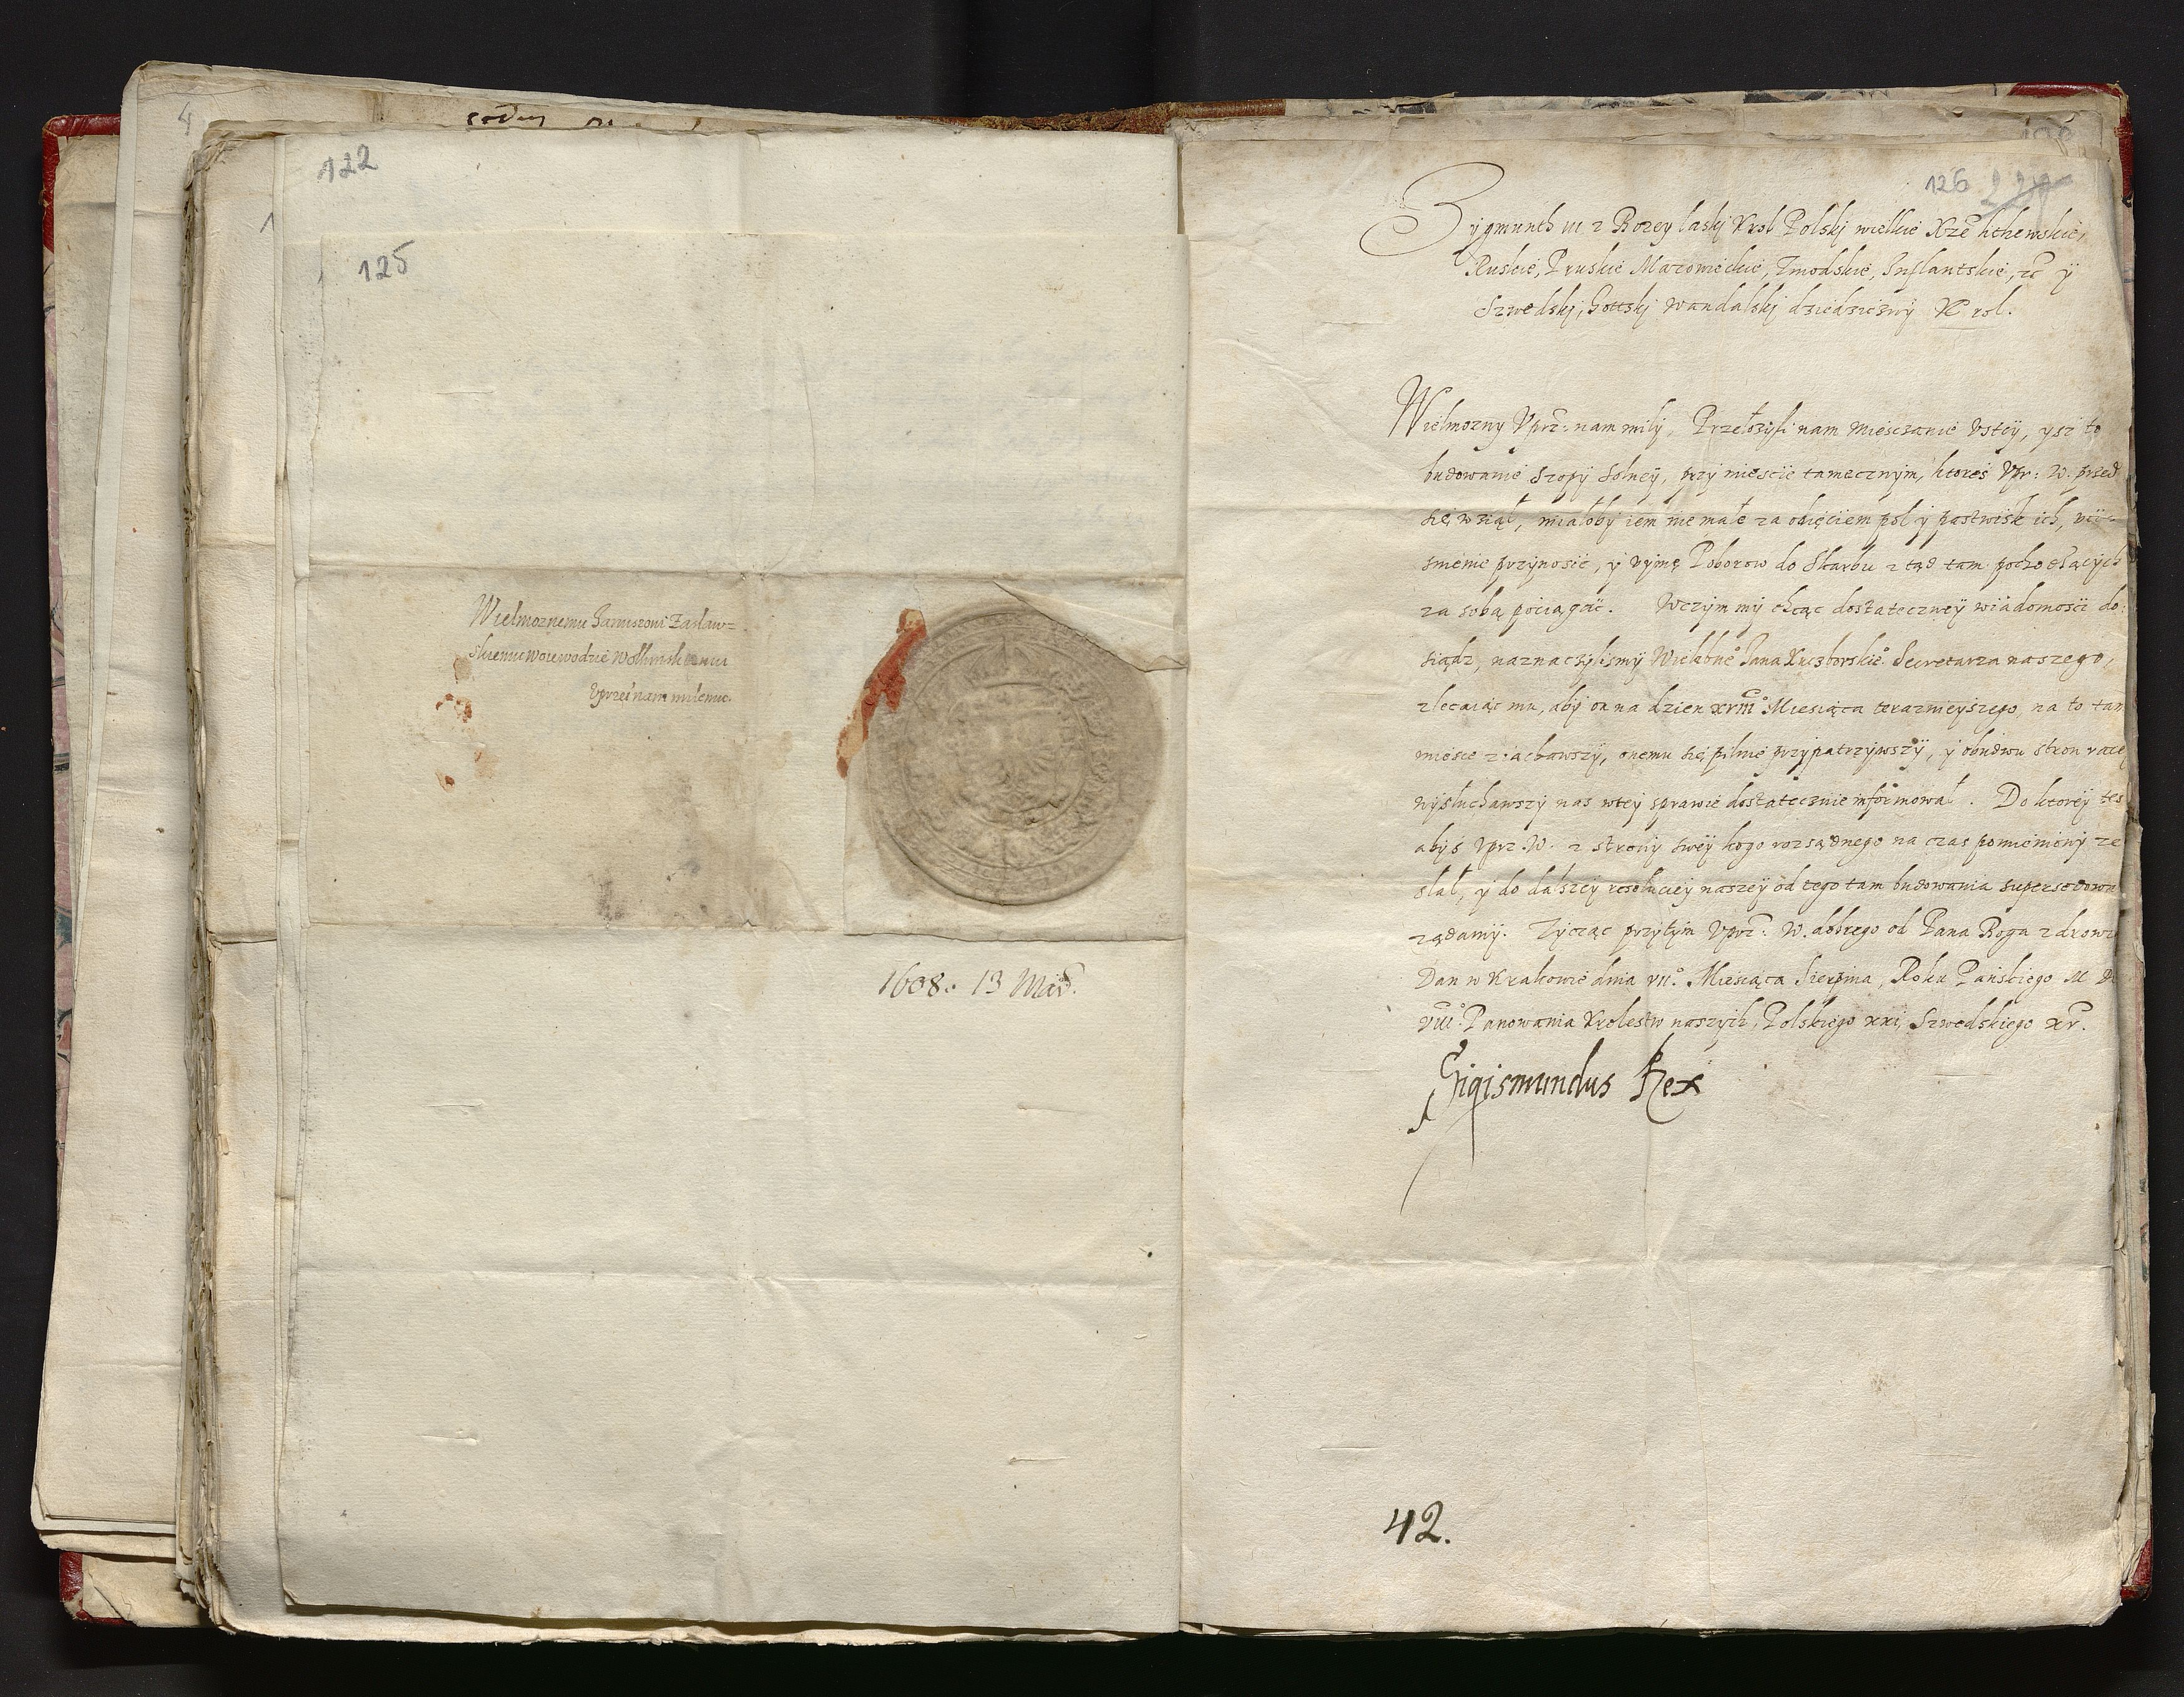 122
125
Wielmoznemu Januszowi Zasław=
skiemu Woiewodzie Wołhinskiemu
Vprzei nam miłemu.
1608. 13 Maÿ.
126
Zygmunth III z Bozey łaskj Krol Polskj wielkie Xże Lithewskie,
Ruskie, Pruskie Mazowieckie, Zmodskie, Inflantskie, etc ÿ
Szwedskj, Gottskj Wandalskj dziedzicznÿ Krol.
Wielmozny Vprz: nam miłÿ, Przełozÿli nam Mieszczanie Vstcÿ, ÿsz to
budowanie Szopÿ Solneÿ, przÿ miescie tamecznÿm, ktores Vpr: W. przed
się wziął, miałobÿ iem nie małe za obięciem pol ÿ pastwisk ich, vci=
snienie przÿnosic, ÿ vÿmę Poborow do Skarbu z tąd tam pochodzącÿch
za sobą pociągac. Wczÿm mÿ chcąc dostatecznÿ wiadomosci do=
siądz, naznaczÿlismÿ Wielebne° Jana Kuczborskie° Secretarza naszego,
zlecaiąc mu, abÿ on na dzien XVIII° Miesiąca terazniejszego, na to tam
miesce ziachawszÿ, onemu się pilnie przÿpatrzÿwszÿ, ÿ obudwu stron racÿ
wÿsłuchawszÿ nas wteÿ sprawie dostatecznie informował. Do ktoreÿ tes
abÿs Vprz. W. z stronÿ sweÿ kogo rozsądnego na czas pomienionÿ ze
słał, ÿ do dalszeÿ resolucieÿ naszeÿ od tego tam budowania supersedowa
ządamÿ. Zÿcząc przÿtÿm Vprz: W. dobrego od Pana Boga zdrowi
Dan w Krakowie dnia VII° Miesiąca Sierpnia, Roku Panskiego M D
VIII° Panowania Krolestw naszÿch, Polskiego XXI, Szwedskiego XV.
Sigismundus Rex
42.